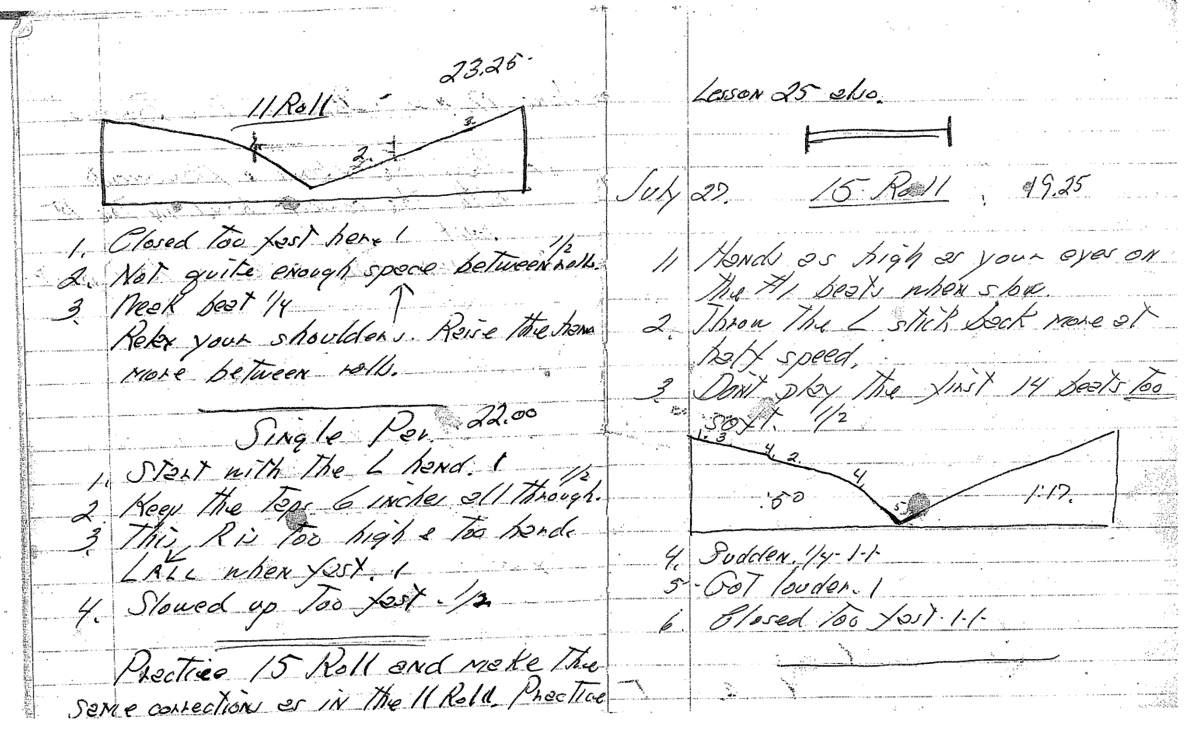 23.25
11 Roll
2.
3.
1. Closed too fast here. 1
2. Not quite enough space between rolls. 1/2
3. Weak beat 1/4
Relax your shoulders. Raise the
more between rolls.
Single Par. 22.00
1. Start with the L hand. 1
2. Keep the Taps 6 inches all through. 1/2
3. This R is too high & too hard.
LRLL when fast. 1
4. Slowed up too fast. 1/2
Practice 15 Roll and make the
same corrections as in the 11 Roll. Practice
Lesson 25 also.
July 27. 15 Roll 19.25
1. Hands as high as your eyes on
the #1 beats when slow.
2. Throw the L stick back more at
half speed.
3. Don't play the first 14 beats too
soft. 1/2
1. 3
4. 2.
4
5
:50
1:17.
4. Sudden. 1/4-1-1-
5-Got louder. 1
6. Closed too fast. 1-1-